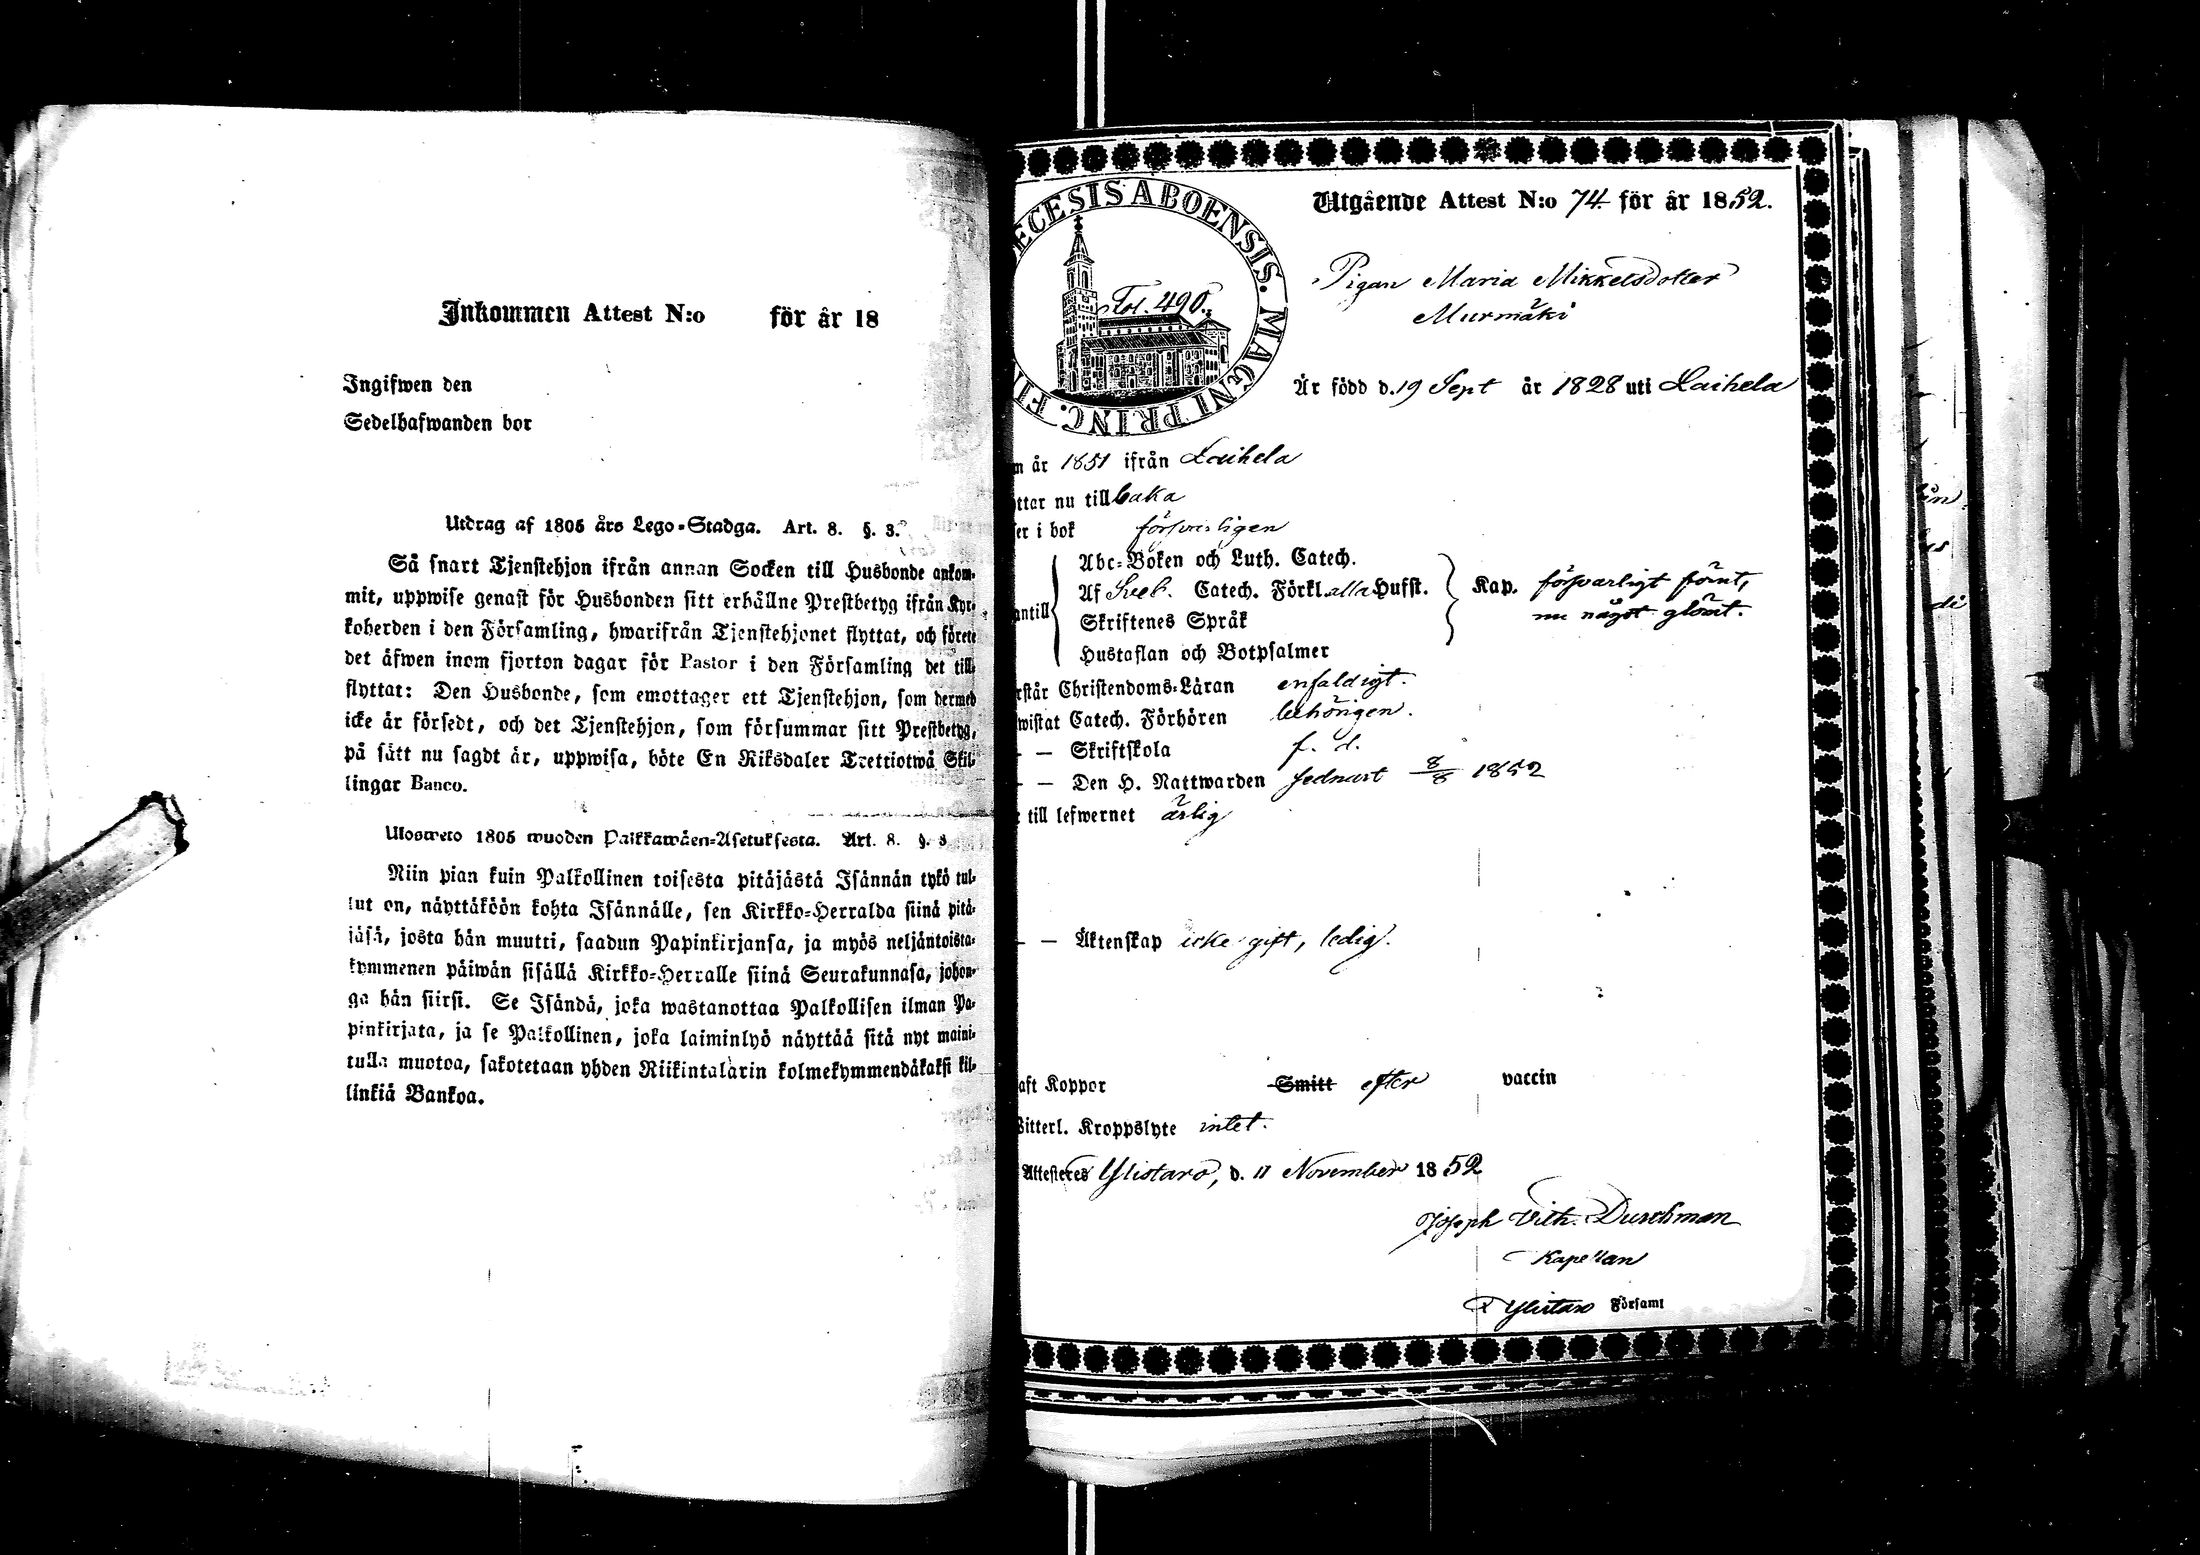 Inkommen Attest N:o för år 18
Ingifwen den
Sedelhafwanden bor
Utdrag af 1805 års Lego-Stadga. Art. 8. §. 3.
Så snart Tjenstehjon ifrån annan Socken till Husbonde ankom-
mit, uppwise genast för Husbonden sitt erhållne Prestbetyg ifrån Kyr-
koherden i den Församling, hwarifrån Tjenstehjonet flyttat, och förete
det äfwen inom fjorton dagar för Pastor i den Församling det till-
flyttat: Den Husbonde, som emottager ett Tjenstehjon, som dermed
icke är försedt, och det Tjenstehjon, som försummar sitt Prestbetyg,
på sätt nu sagdt är, uppwisa, böte En Riksdaler Trettiotwå Skil-
lingar Banco.
Ulosweto 1805 wuoden Palkkawäen-Asetuksesta. Art. 8. §. 3
Niin pian kuin Palkollinen toisesta pitäjästä Isännän tykö tul-
lut on, näyttäköön kohta Isännälle, sen Kirkko-Herralda siinä pitä-
jäsä, josta hän muutti, saadun Papinkirjansa, ja myös neljäntoista-
kymmenen päiwän sisällä Kirkko-Herralle siinä Seurakunnasa, johon-
ga hän siirsi. Se Isändä, joka wastanottaa Palkollisen ilman Pa-
pinkirjata, ja se Palkollinen, joka laiminlyö näyttää sitä nyt maini-
tulla muotoa, sakotetaan yhden Riikintalarin kolmekymmendäkaksi kil-
linkiä Bankoa.
ECESIS ABOENSIS. MAGNI PRINC. FI
Fol. 490.
Utgående Attest N:o 74 för år 1852.
Pigan Maria Mikkelsdotter
Murmäki
Är född d. 19 Sept år 1828 uti Laihela
m år 1851 ifrån Laihela
ttar nu till baka
er i bok försvarligen
Abc-Boken och Luth. Catech.
Af Sveb. Catech. Förkl. alla Hufst.
antill
Skriftenes Språk
Hustaflan och Botpsalmer
Kap. försvarligt förut,
nu något glömt.
rstår Christendoms-Läran enfaldigt.
wistat Catech. Förhören behörigen.
— Skriftskola f. d.
— Den H. Nattwarden sednast 8/8 1852
till lefwernet ärlig
— Äktenskap icke gift, ledig.
aft Koppor Smitt efter vaccin
Witterl. Kroppslyte intet.
Attesteres Ylistaro, d. 11 November 1852
Joseph Vilh. Durchman
Kapellan
i Ylistaro Församl